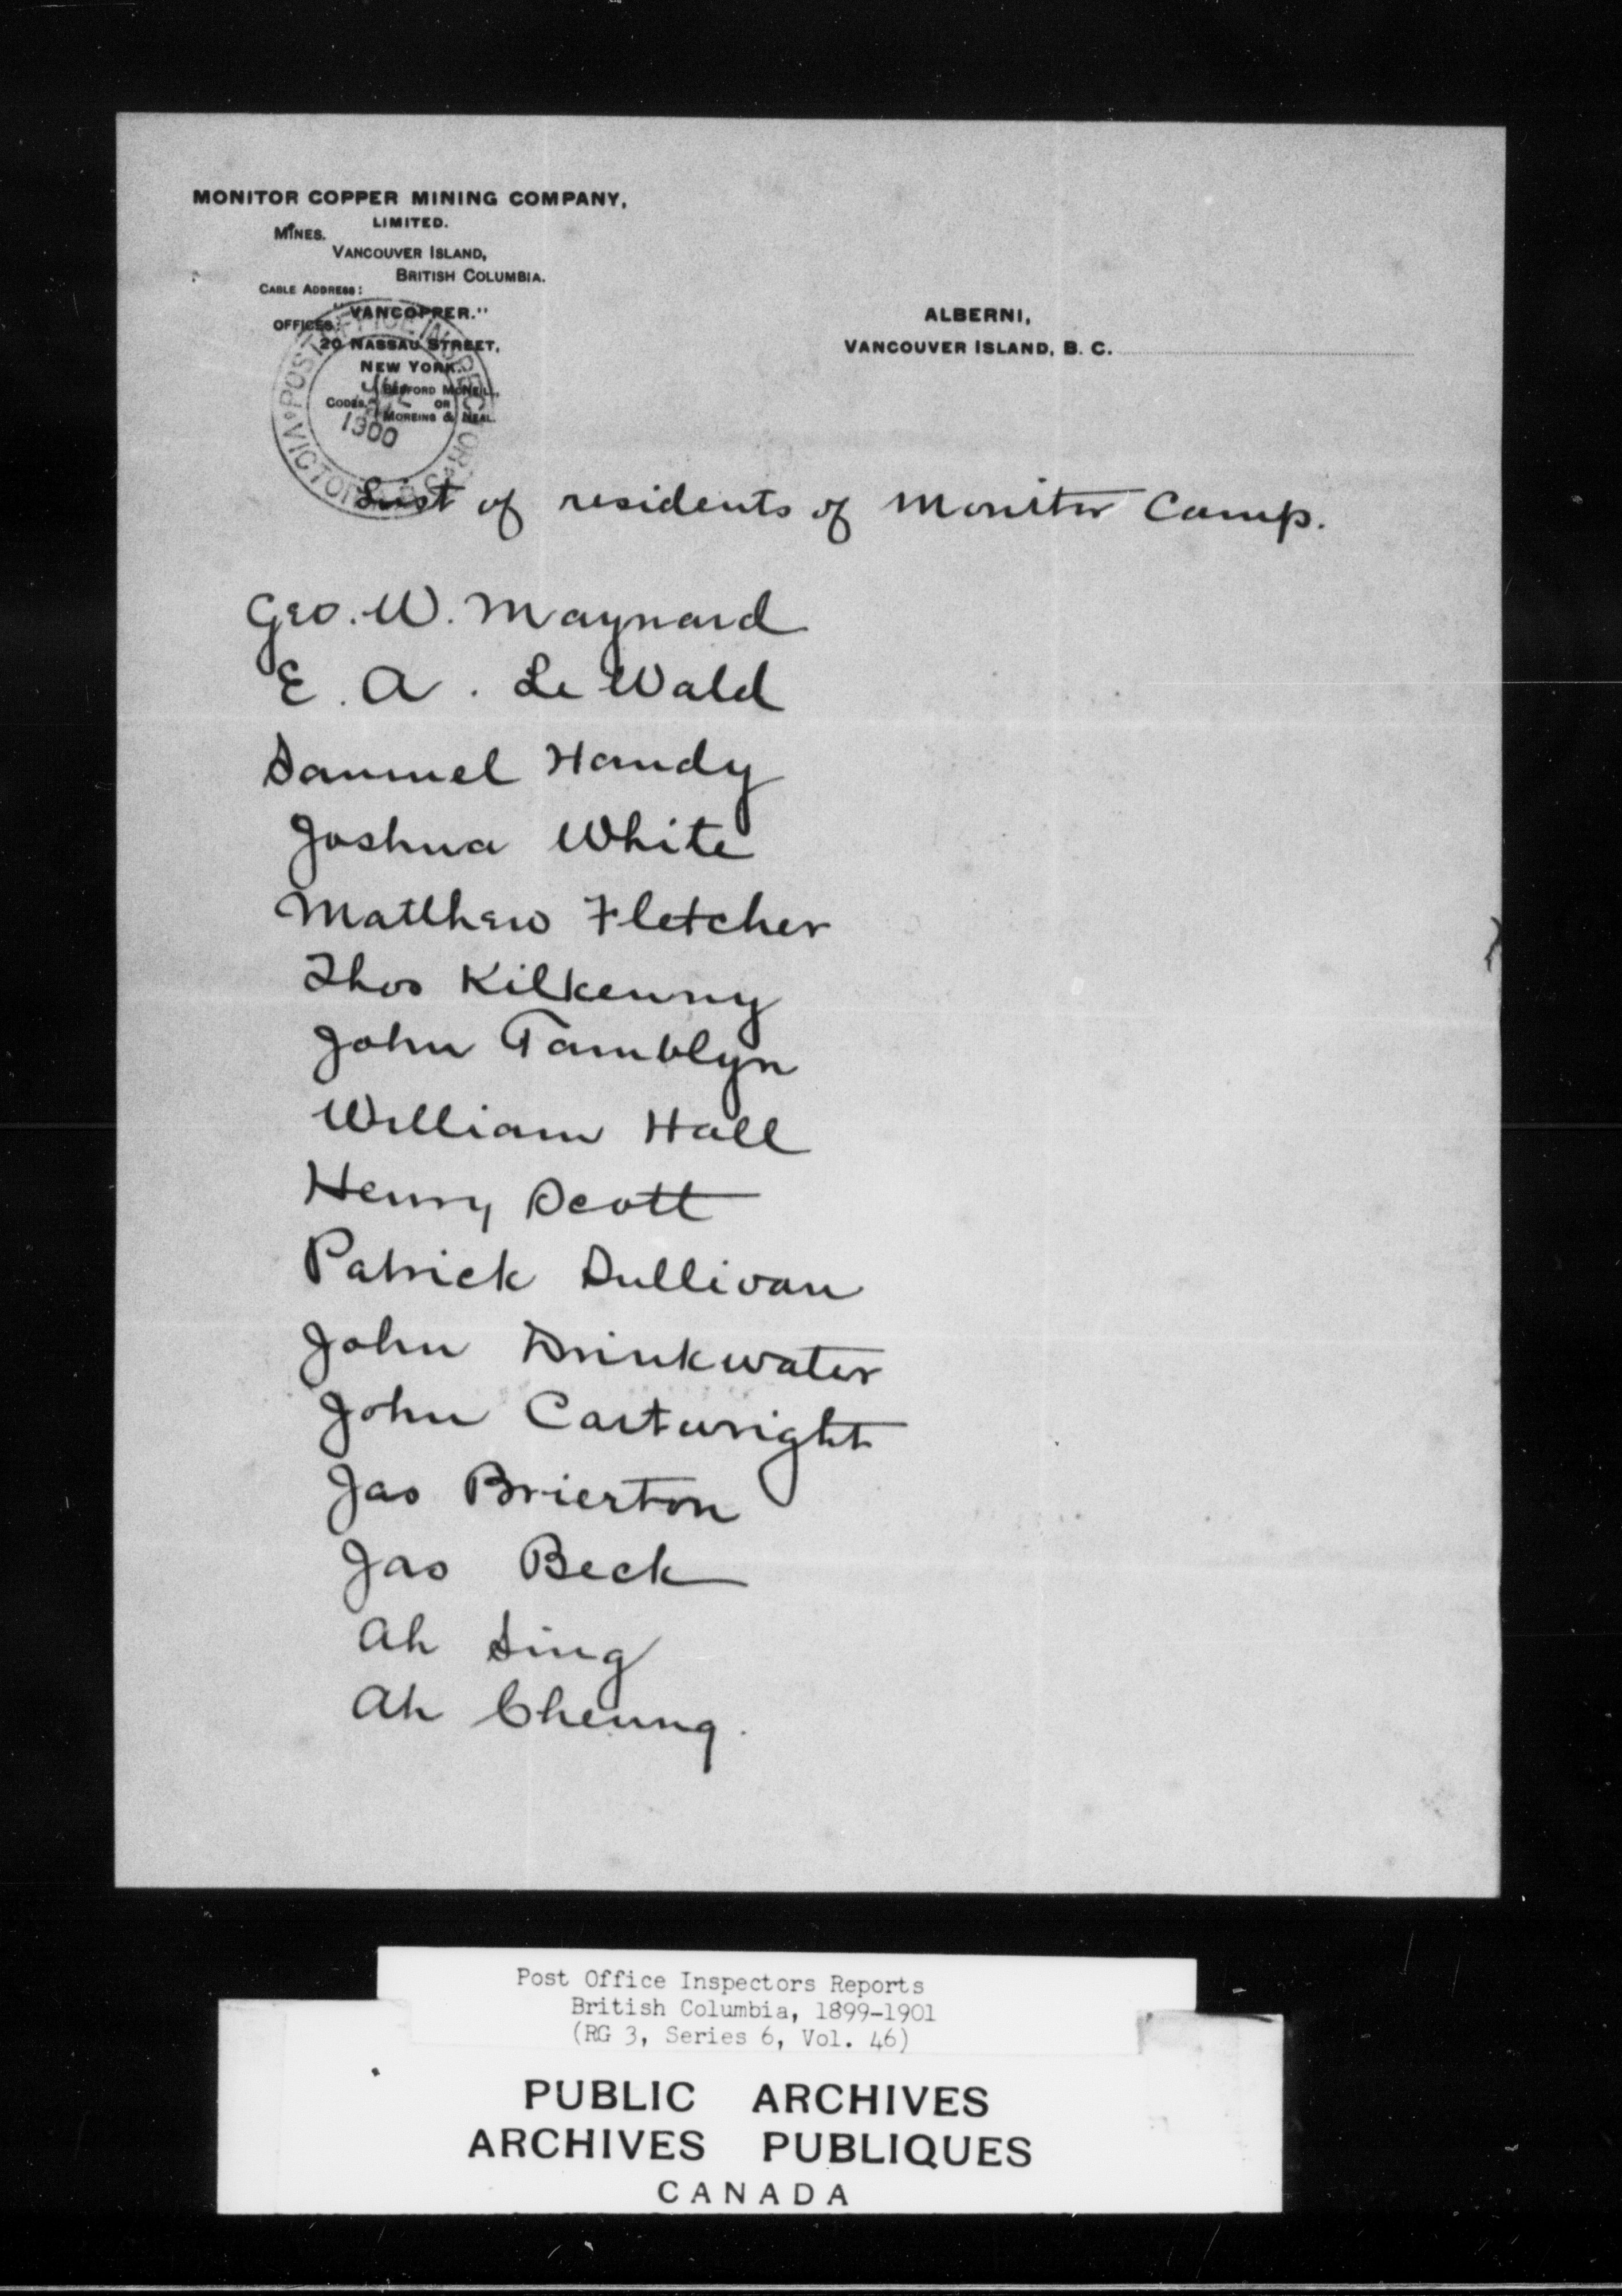 MONITOR COPPER MINING COMPANY,
LIMITED.
MINES.
VANCOUVER ISLAND,
BRITISH COLUMBIA.
CABLE ADDRESS:
"VANCOPPER."
OFFICES:
20 NASSAU STREET,
NEW YORK.
CODES. BEDFORD MCNEILL, OR MOREING & NEAL.
POST OFFICE INSPECTOR
VICTORIA B.C.
1900
ALBERNI,
VANCOUVER ISLAND, B. C.
List of residents of Monitor Camp.
Geo. W. Maynard
E. A. Le Wald
Samuel Handy
Joshua White
Matthew Fletcher
Thos Kilkenny
John Tamblyn
William Hall
Henry Scott
Patrick Sullivan
John Drinkwater
John Cartwright
Jas Brierton
Jas Beck
Ah Sing
Ah Cheung.
Post Office Inspectors Reports
British Columbia, 1899-1901
(RG 3, Series 6, Vol. 46)
PUBLIC ARCHIVES
ARCHIVES PUBLIQUES
CANADA